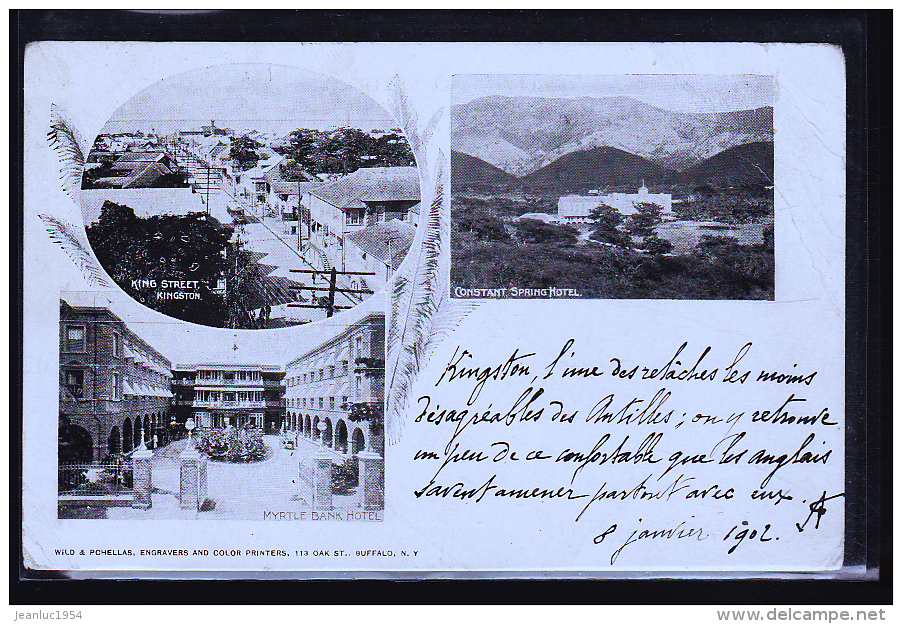 KING STREET,
KINGSTON.
CONSTANT SPRING HOTEL.
MYRTLE BANK HOTEL
Kingston, l'une des relâches les moins
désagréables des Antilles ; on y retrouve
un peu de ce confortable que les anglais
savent amener partout avec eux.
8 janvier 1902.
WILD & PCHELLAS, ENGRAVERS AND COLOR PRINTERS, 113 OAK ST., BUFFALO, N. Y
jeanluc1954
delcampe.net